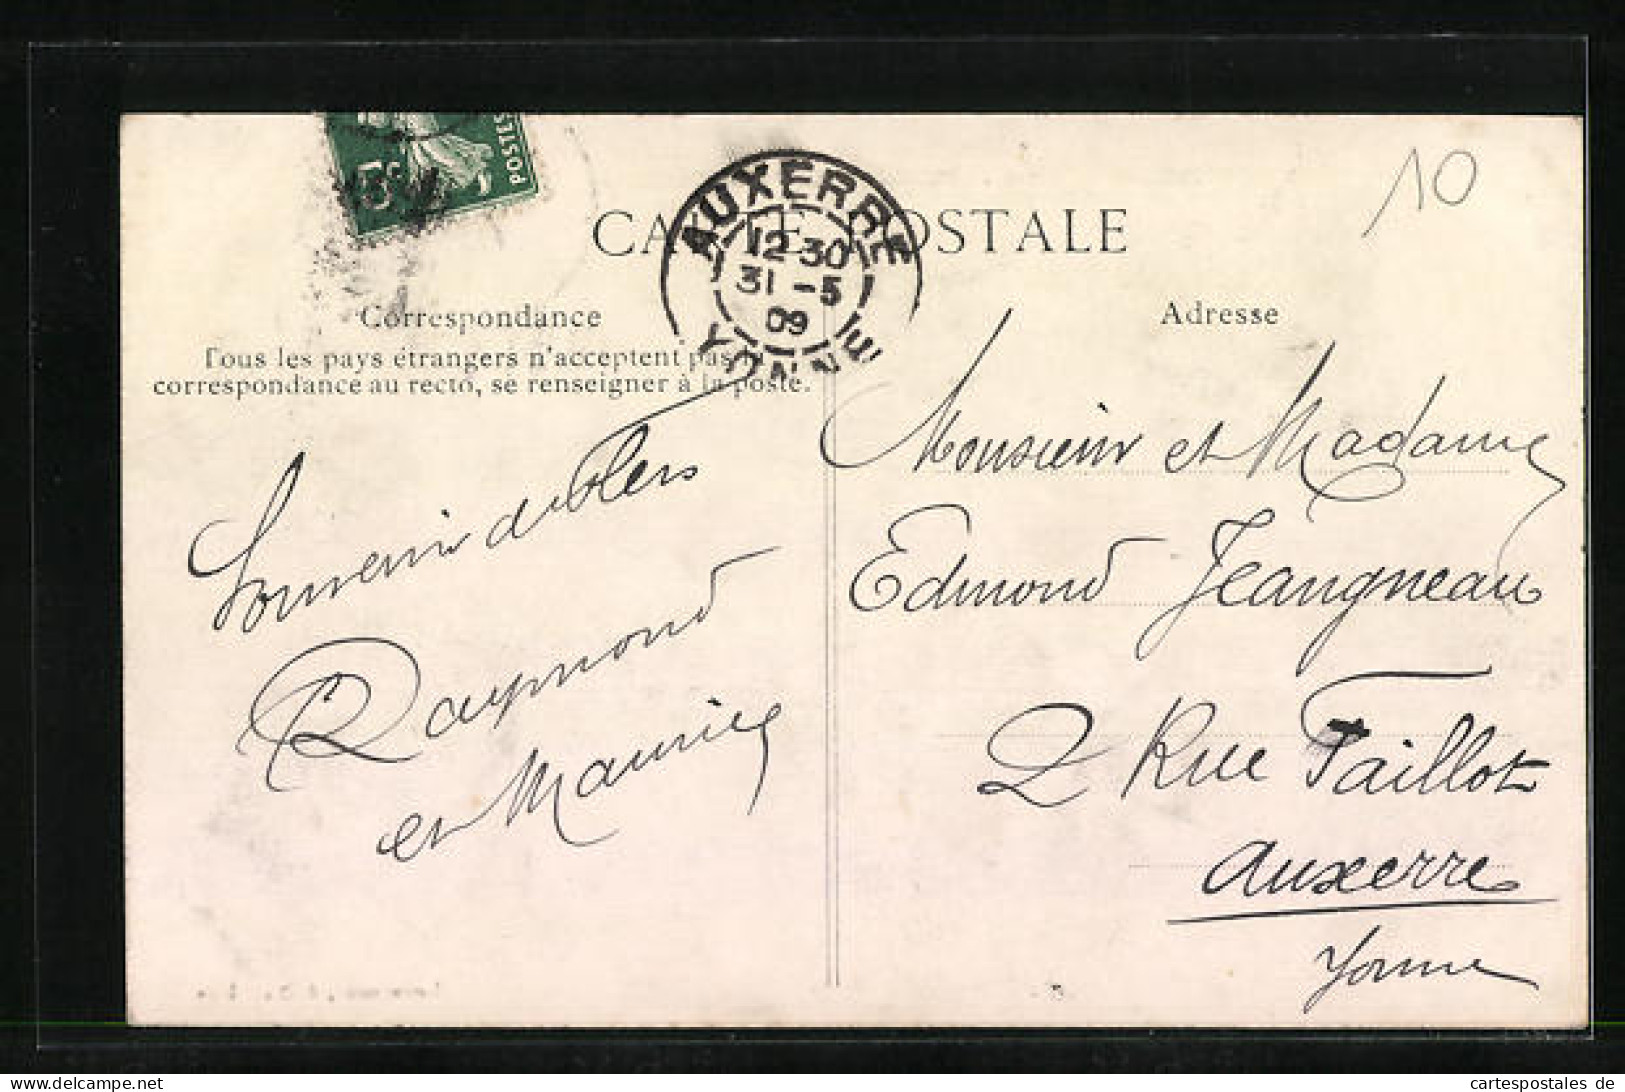 5c
POSTES
10
AUXERRE
12 30
31 -5
09
YONNE
CARTE POSTALE
Correspondance
Tous les pays étrangers n'acceptent pas la
correspondance au recto, se renseigner à la poste.
Souvenir de Flers
Raymond
et Maurice
Adresse
Monsieur et Madame
Edmond Jeangneau
2 Rue Taillot
Auxerre
Yonne
cartespostales de